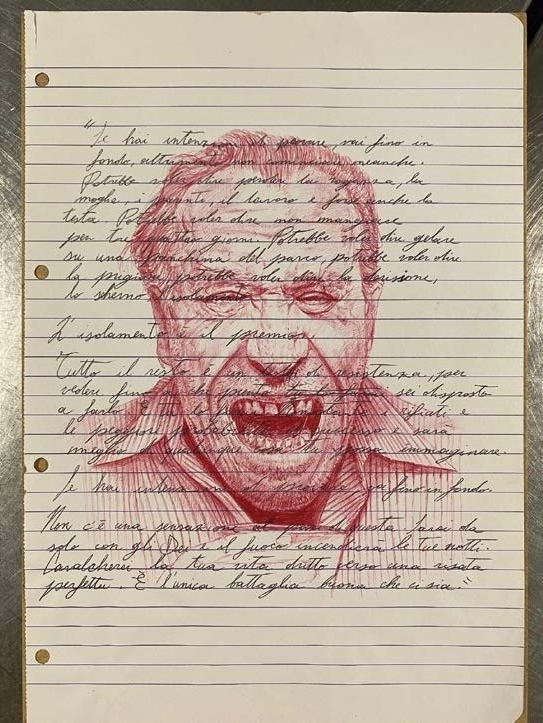 "Se hai intenzione di provare, vai fino in
fondo, altrimenti non cominciare neanche.
Potrebbe voler dire perdere la ragazza, la
moglie, i parenti, il lavoro e forse anche la
testa. Potrebbe voler dire non mangiare
per tre, quattro giorni. Potrebbe voler dire gelare
su una panchina del parco, potrebbe voler dire
la prigione, potrebbe voler dire la derisione,
lo scherno, l'isolamento
L'isolamento è il premio.
Tutto il resto è un test di resistenza, per
vedere fino a che punto sei disposto
a farlo. E tu lo farai. Nonostante i rifiuti e
le peggiori probabilità di successo e sarà
meglio di qualunque cosa tu possa immaginare.
Se hai intenzione di provare, vai fino in fondo.
Non c'è una sensazione al pari di questa. Sarai da
solo con gli Dei e il fuoco incendierà le tue notti.
Cavalcherai la tua vita dritto verso una risata
perfetta. È l'unica battaglia buona che ci sia."